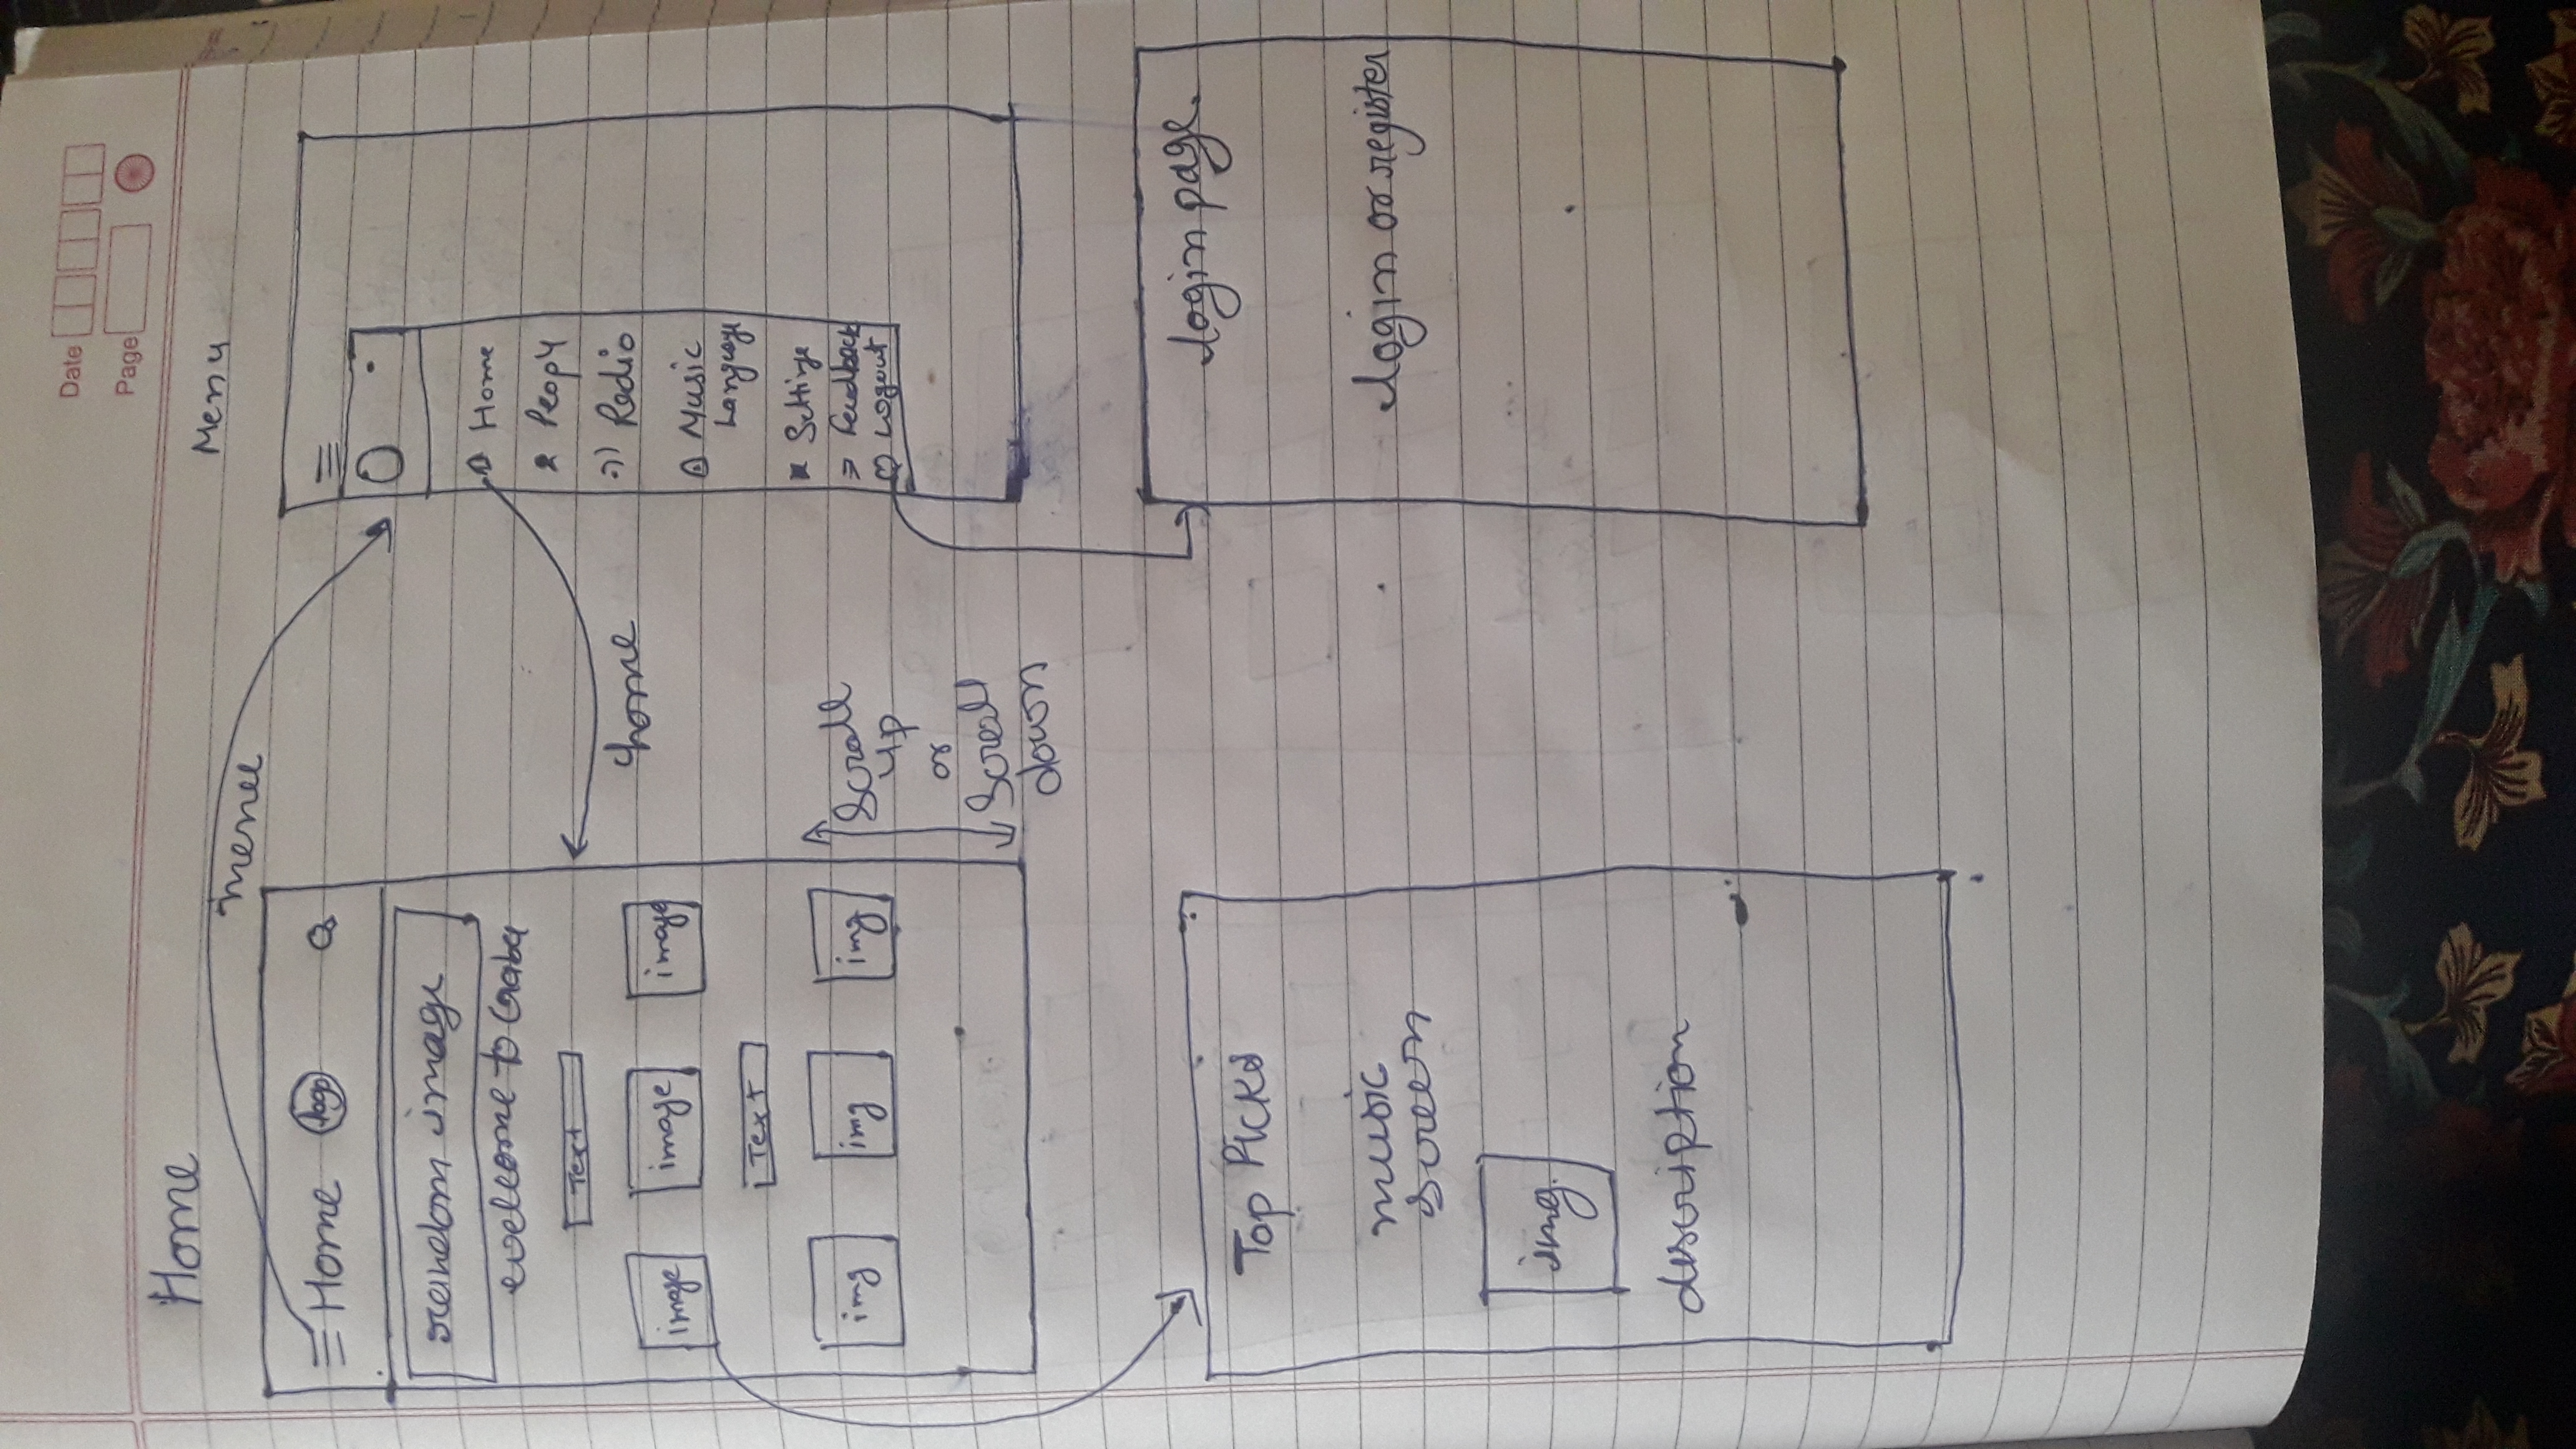 Date
Page
Home
Menu
menu
Home
logo
random image
welcome to Gaba
Text
image
image
image
Text
img
img
img
Scroll
up
or
Scroll
down
home
Home
Radio
Music
Language
Feedback
Logout
Top Picks
music
screen
img.
description
login page.
login or register